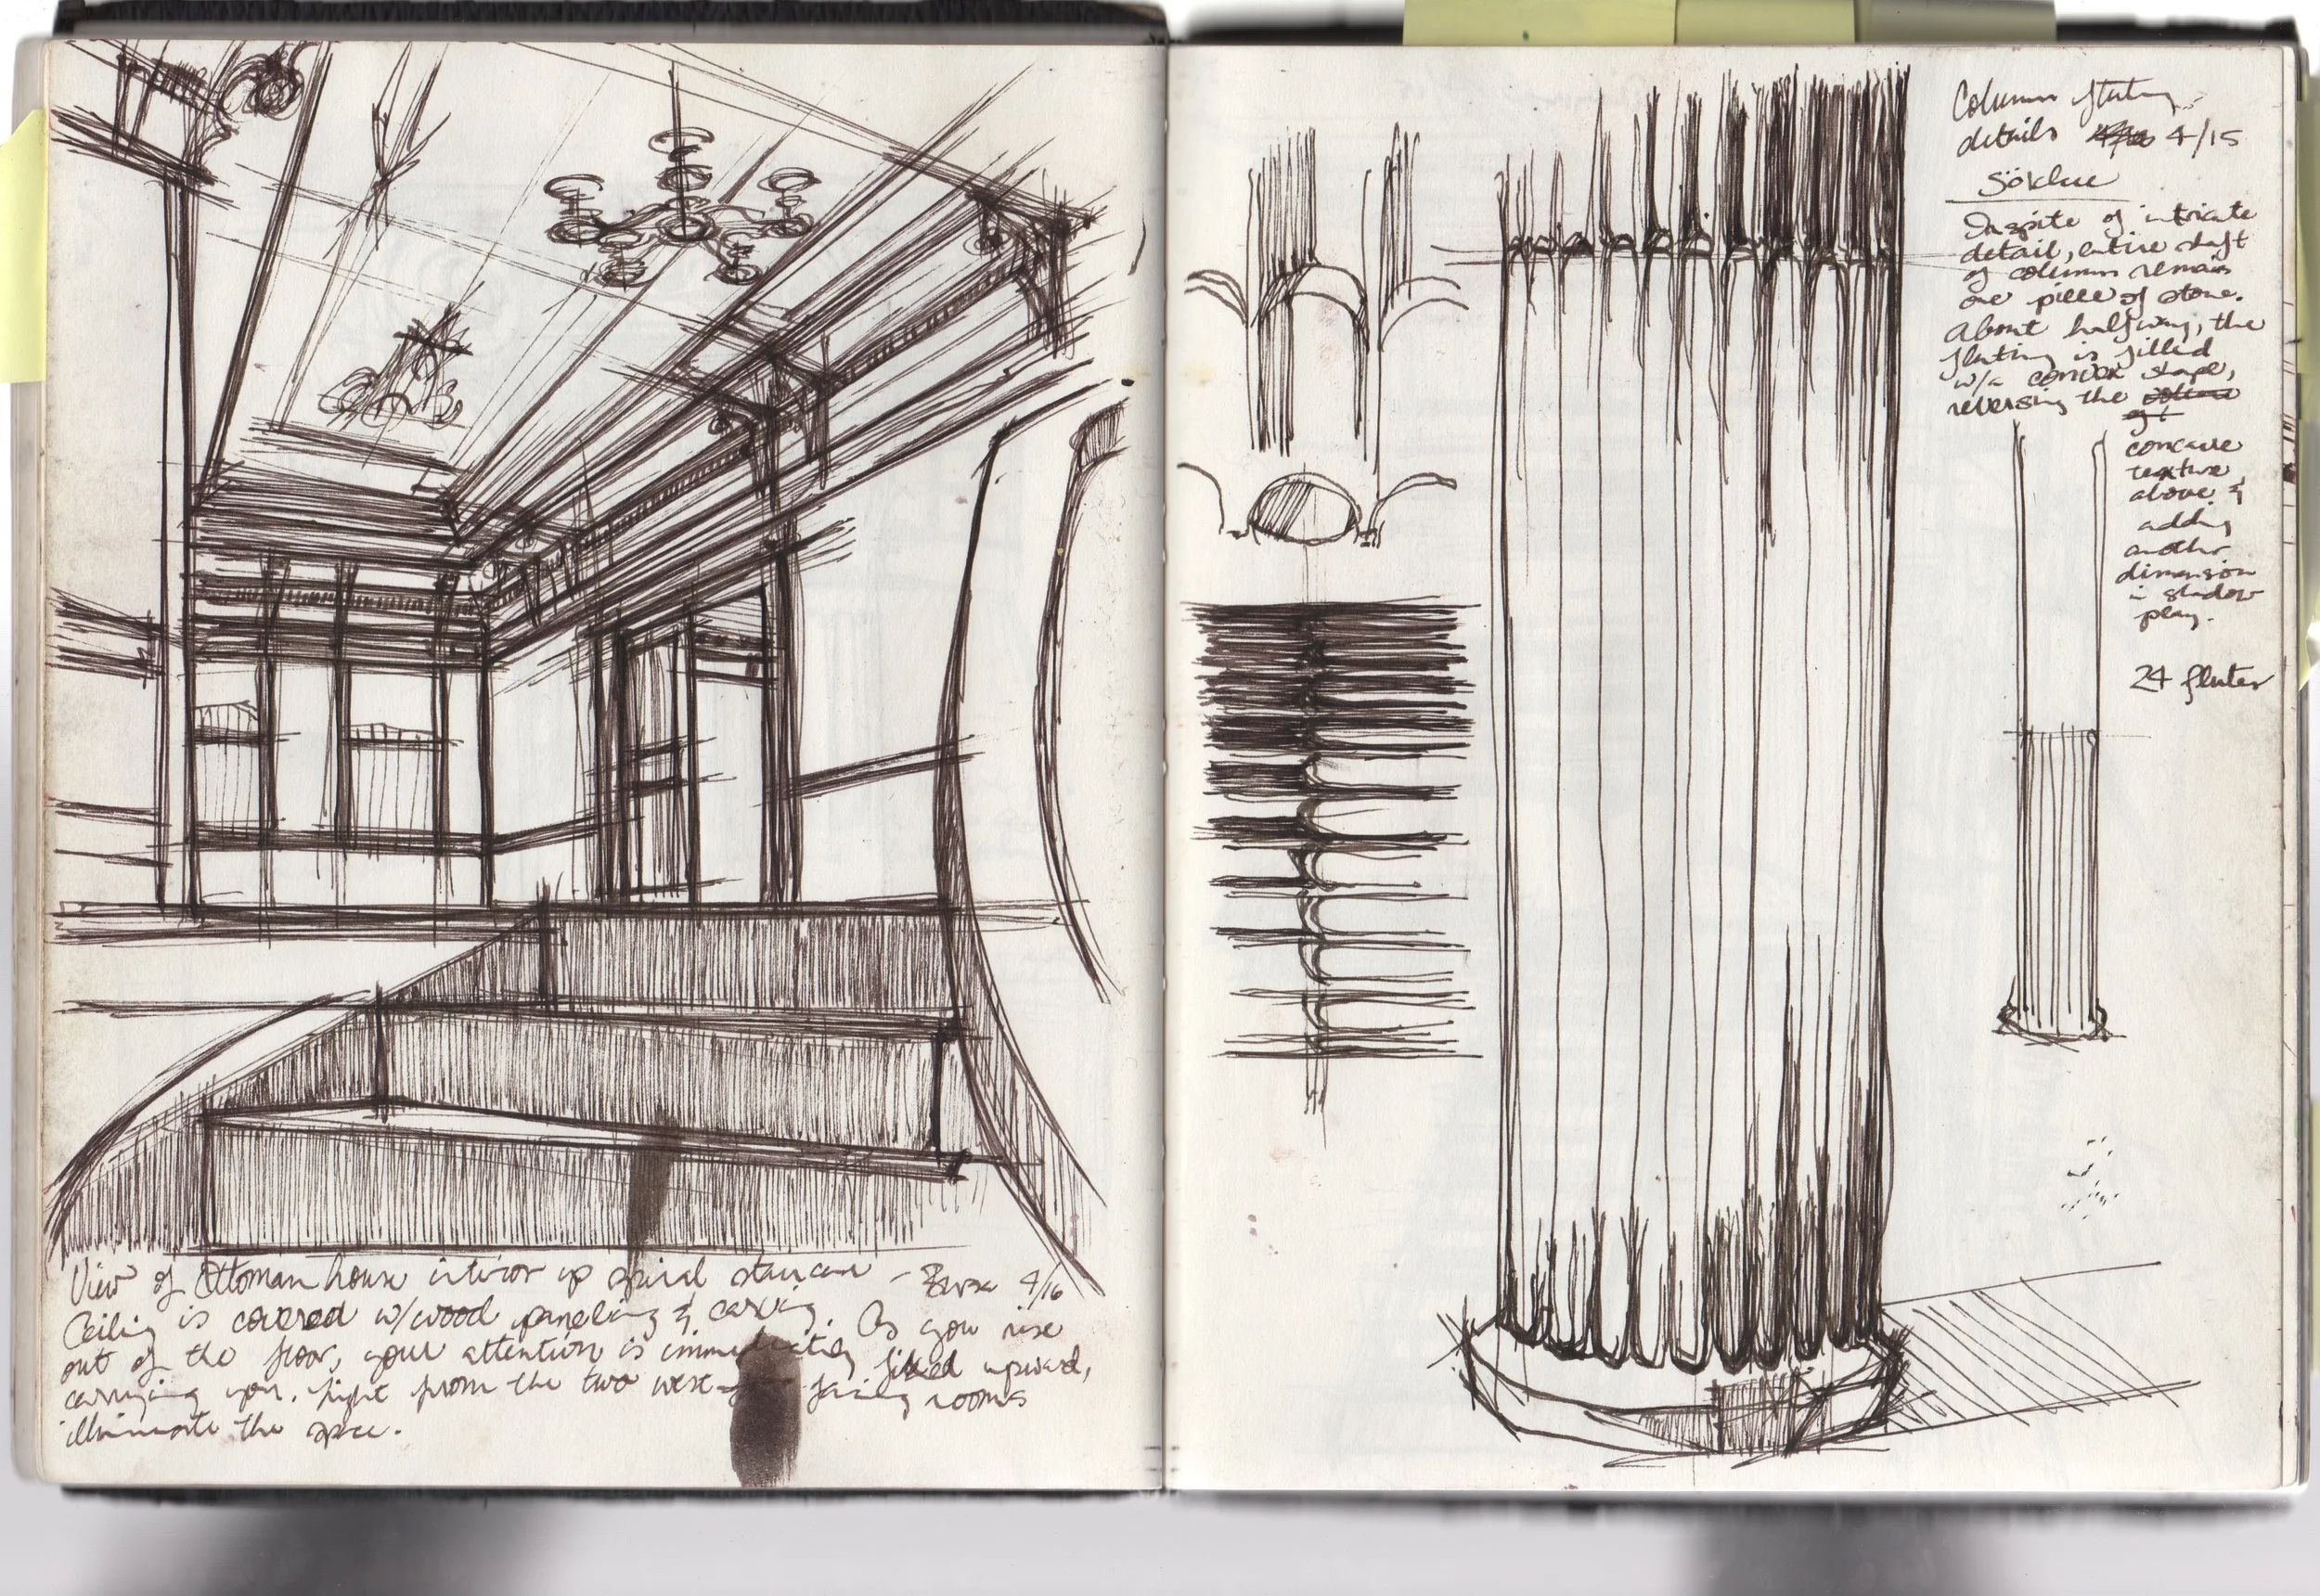 View of Ottoman house interior up spiral staircase – Bursa 4/16
Ceiling is covered w/wood paneling & carving. As you rise
out of the floor, your attention is immediately filled upward,
carrying you. Light from the two west facing rooms
illuminate the space.
Column fluting
details 4/15
Inspite of intricate
detail, entire shaft
of column remais
one piece of stone.
About halfway, the
fluting is filled
w/a convex shape,
reversing the
concave
texture
above &
adding
another
dimension
in shadow
play.
24 flutes